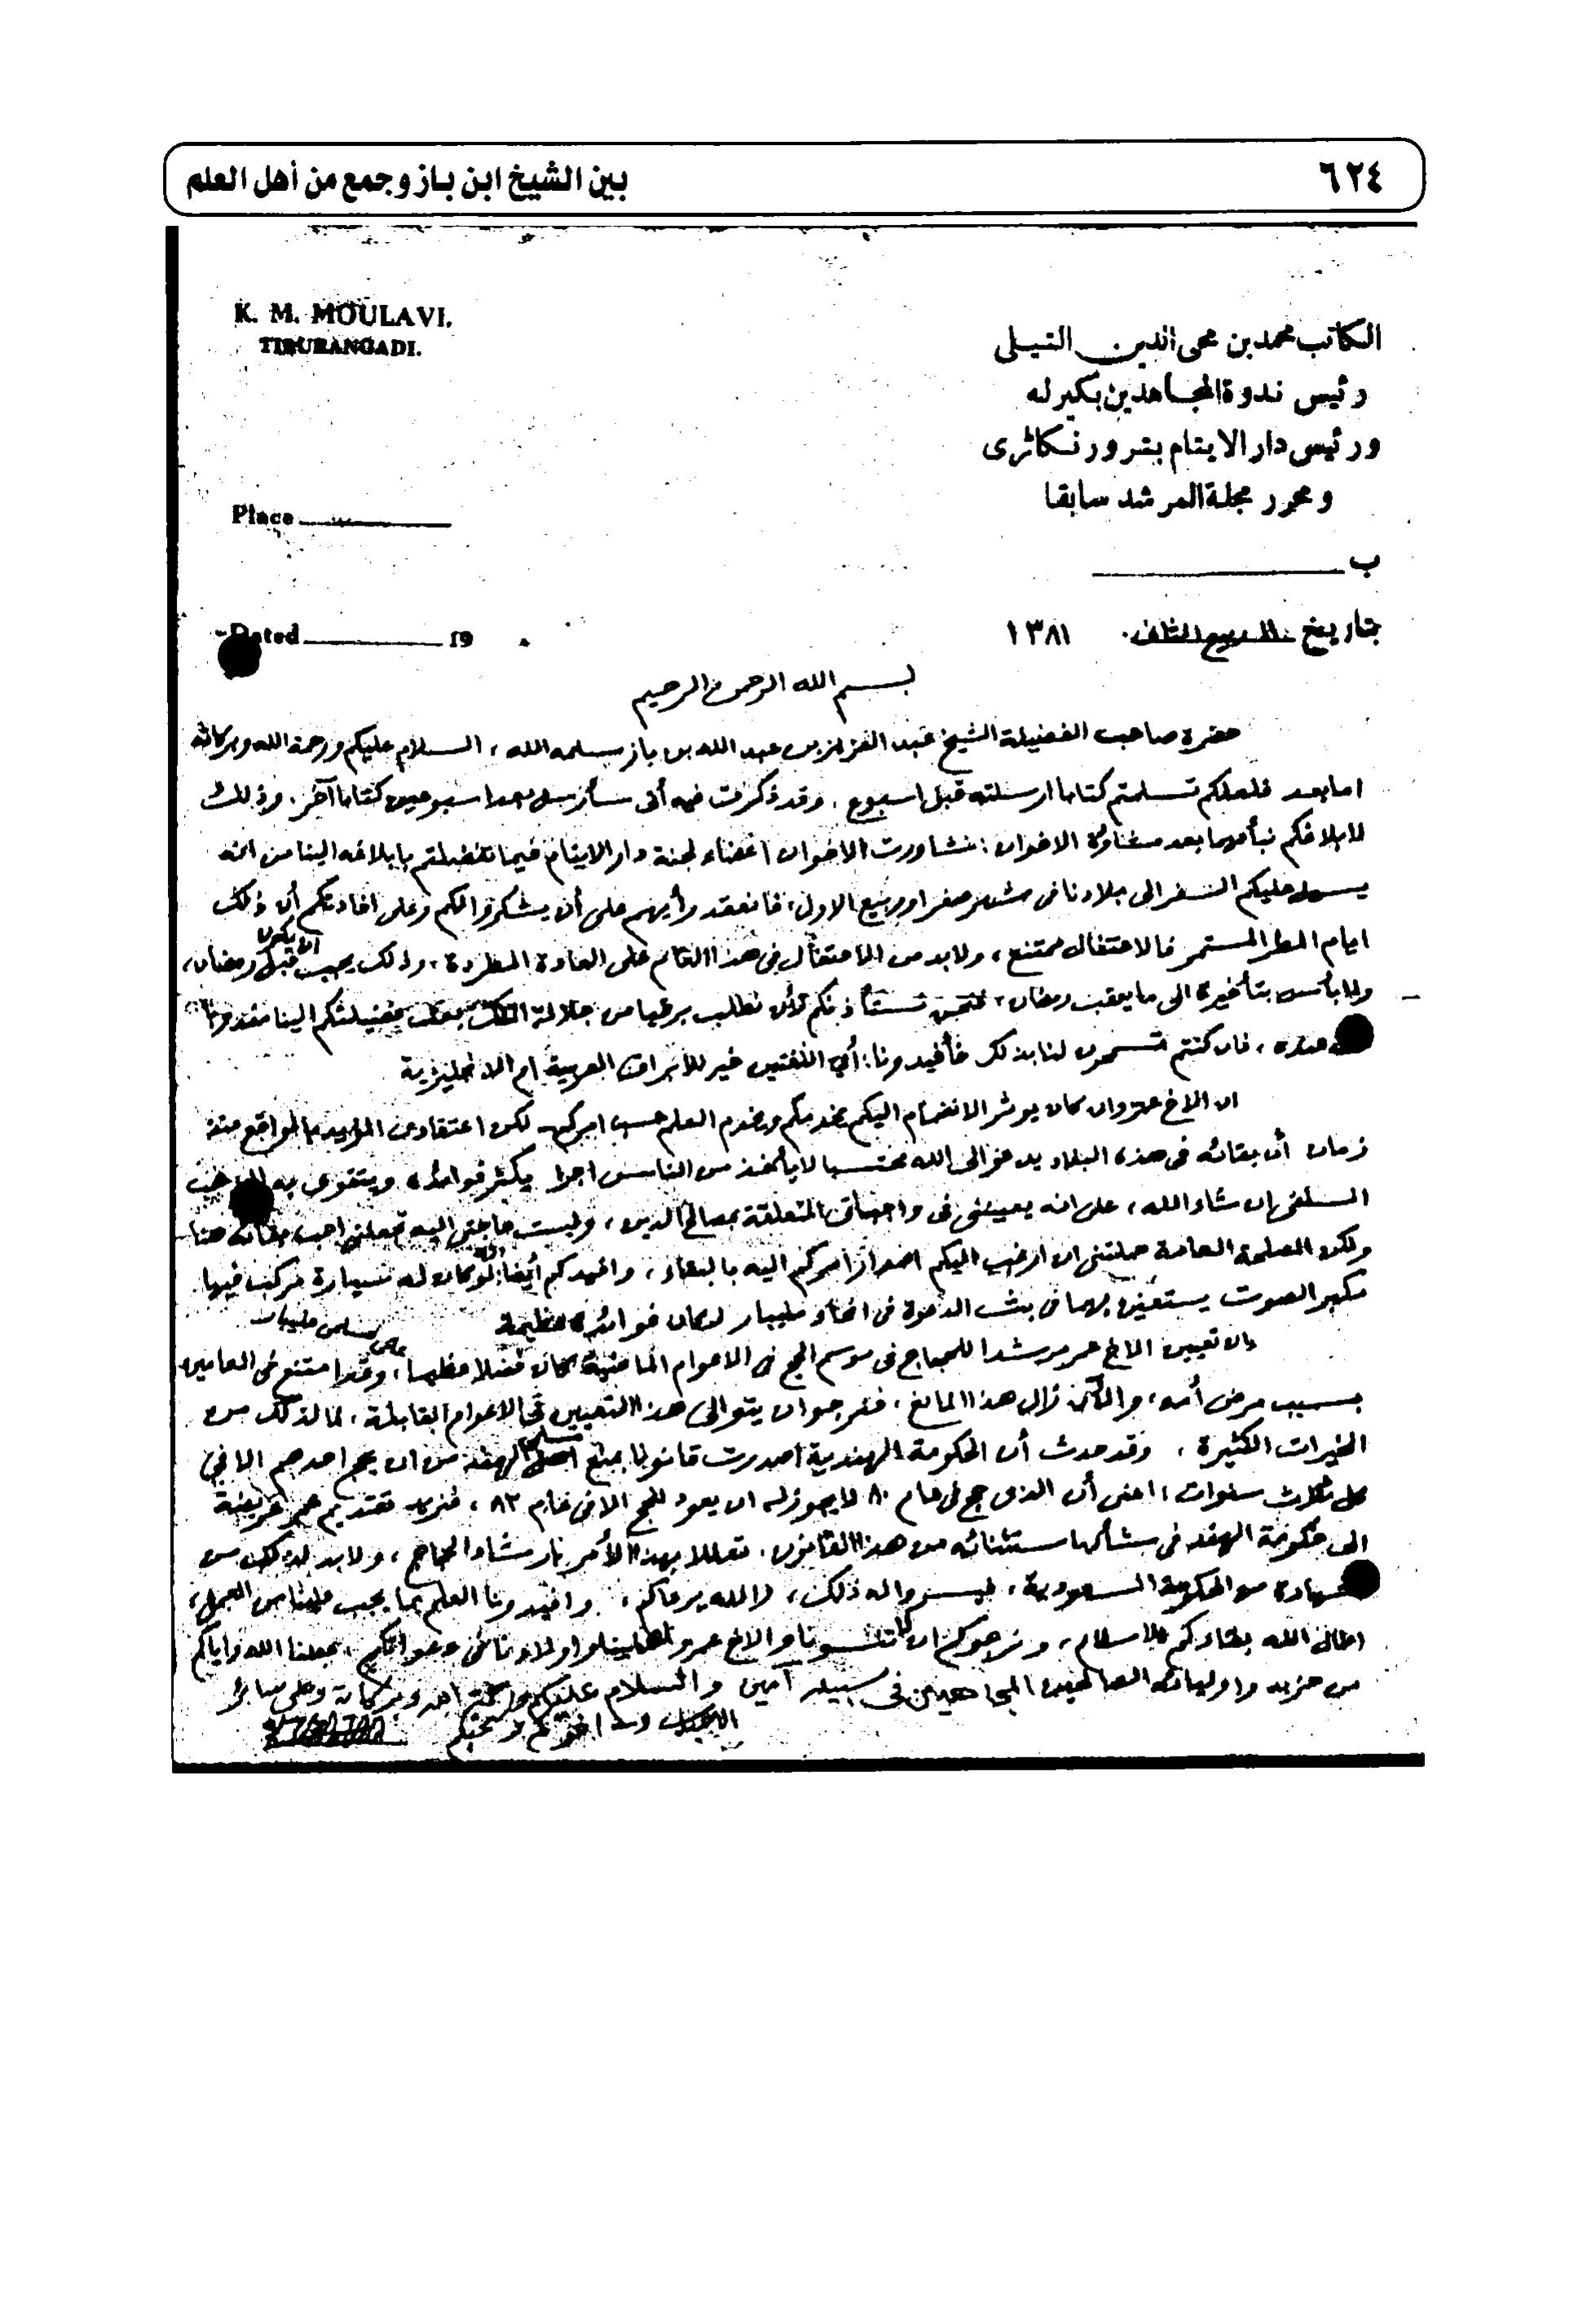 ٦٢٤
بين الشيخ ابن باز وجمع من أهل العلم
K. M. MOULAVI.
TIRURANGADI.
الكاتب محمد بن محى الدين
رئيس ندوة المجاهدين بكيرله
ورئيس دار الايتام بترورنكاثرى
ومحرر مجلة المرشد سابقا
Place
ب
بتاريخ ربيع الثانى ١٣٨١
Dated 19
بسم الله الرحمن الرحيم
حضرة صاحب الفضيلة الشيخ عبد العزيز بن عبد الله بن باز سلمه الله، السلام عليكم ورحمة الله وبركاته
اما بعد فلعلكم تسلمتم كتابا ارسلته قبل اسبوع. وقد ذكرت فيه أنى سأرسل بعد اسبوعين كتابا آخر. وذلك
لابلاغكم نبأ مهما بعد مشاورة الاخوان: فشاورت الاخوان اعضاء لجنة دار الايتام فيما تفضلتم بابلاغه الينا من انه
يسهل عليكم السفر الى بلادنا فى شهر صفر او ربيع الاول، فانعقد رأيهم على أن يشكروا لكم وعلى افادتكم أن ذلك
ايام المطر المستمر فالاحتفال ممتنع، ولابد من الاحتفال فى هذا العام على العادة المطردة، وذلك يجب ان يكون قبل رمضان،
ولا بأس بتأخيره الى ما يعقب رمضان، فنحن نستأذنكم لأن نطلب برقيا من جلالة الملك بعث فضيلتكم الينا مندوبا
عنده، فان كنتم تسمحون لنا بذلك فأفيدونا: أي اللغتين خير للابراق العربية ام الانجليزية
ان الاخ عمر وان كان يوثر الانضمام اليكم يخدمكم ويخدم العلم حسب امركم لكن اعتقادى المؤيد بالواقع منذ
زمان أن بقائه فى هذه البلاد يدعو الى الله محتسبا لا يأخذ من الناس اجرا يكثر فوائده ويتقوى به المذهب
السلفى ان شاء الله، على انه يعيننى فى واجباتى المتعلقة بمصالح الدين، وليست حاجتى اليه تجعلنى احب بقائه هنا
ولكن المصلحة العامة حملتنى ان ارغب اليكم اصدار امركم اليه بالبقاء، وافيدكم أيضا انه لو كان له سيارة مركب فيها
مكبر الصوت يستعين بهما فى بث الدعوة فى انحاء مليبار لكان فوائده عظيمة
ان تعيين الاخ عمر مرشدا للحجاج فى موسم الحج فى الاعوام الماضية كان فضلا عظيما على مسلمى مليبار، وقد امتنع فى العامين
بسبب مرض أمه، والآن زال هذا المانع، فنرجو ان يتوالى هذا التعيين فى الاعوام القابلة، لما لذلك من
الخيرات الكثيرة، وقد حدث أن الحكومة الهندية اصدرت قانونا بمنع مسلمى الهند من ان يحج احدهم الا فى
كل ثلاث سنوات، اعنى أن الذى حج فى عام ٨٠ لا يجوز له ان يعود للحج الا فى عام ٨٣، فنريد تقديم عمر عريضة
الى حكومة الهند فى شأن استثنائه من هذا القانون. تعللا بهذا الأمر بارشاد الحجاج، ولابد لذلك من
شهادة من الحكومة السعودية، فيسروا له ذلك، والله يرعاكم، وافيدونا العلم بما يجب علينا من العمل،
اطال الله بقاءكم للاسلام، ونرجوكم ان لا تنسونا والاخ عمر واولادنا فى دعواتكم، جعلنا الله واياكم
من حزبه واوليائه الصالحين المجاهدين فى سبيله آمين والسلام عليكم ورحمة الله وبركاته وعلى سائر